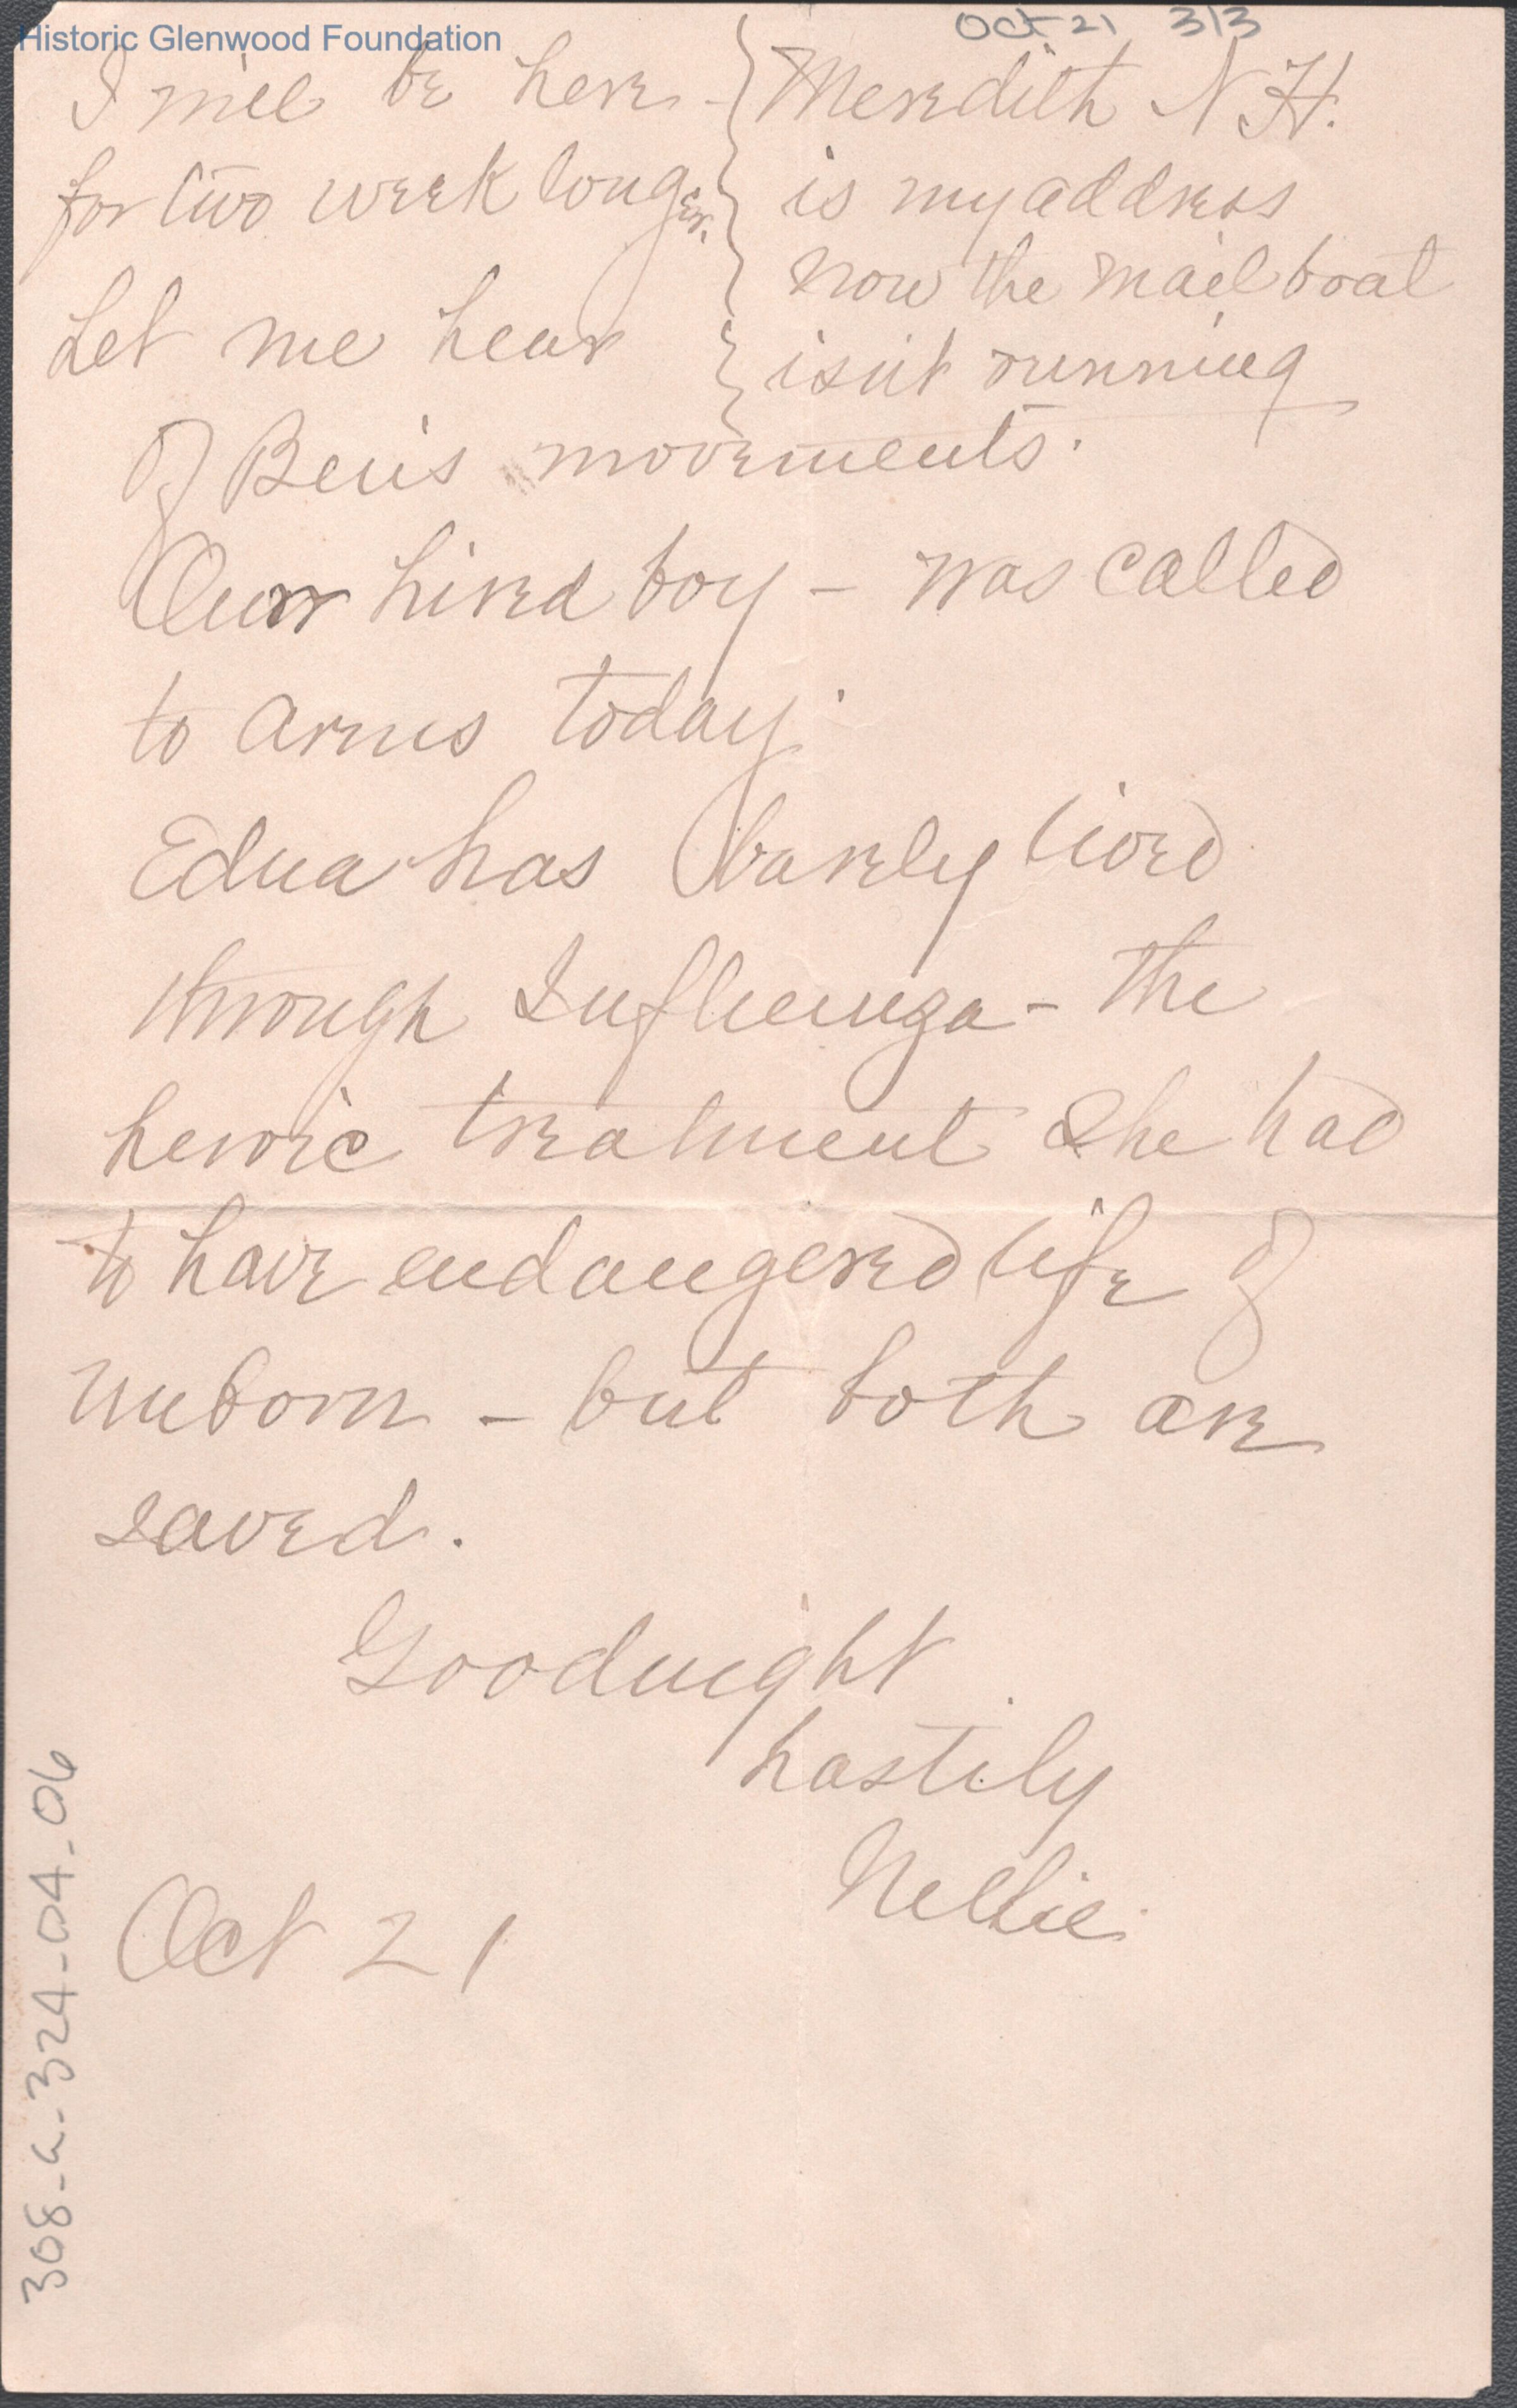 Historic Glenwood Foundation
Oct 21 3/3
I will be here
for two week longer.
Let me hear
Meredith N.H.
is my address
now the mail boat
isn't running
of Ben's movements.
Our hired boy – was called
to arms today.
Edna has barely lived
through Influenza – the
heroic treatment she had
to have endangered life of
unborn – but both are
saved.
Goodnight
hastily
Nellie.
Oct 21
308-a-324-04-06